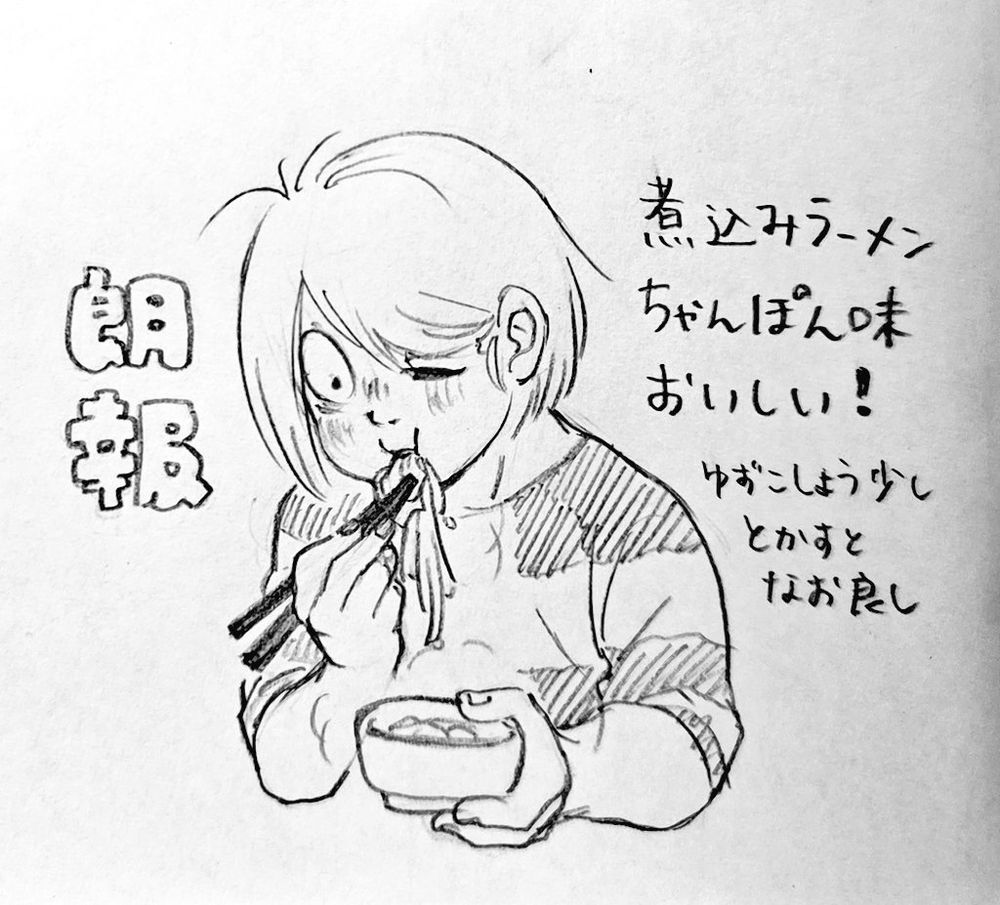 朗報
煮込みラーメン
ちゃんぽん味
おいしい!
ゆずこしょう少し
とかすと
なお良し